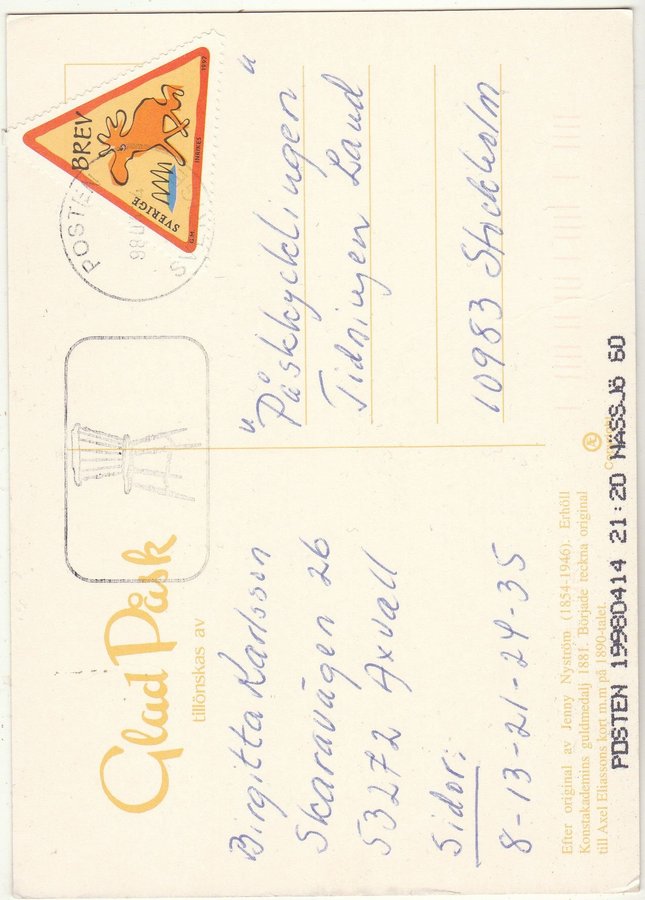 Glad Påsk
tillönskas av
Birgitta Karlsson
Skaravägen 26
53272 Axvall
Sidor:
8-13-21-24-35
Efter original av Jenny Nyström (1854-1946). Erhöll
Konstakademins guldmedalj 1881. Började teckna original
till Axel Eliassons kort m.m på 1890-talet.
BREV
SVERIGE
INRIKES
1992
G.H.
POSTEN
"Påskkycklingen"
Tidningen Land
10983 Stockholm
POSTEN 19980414 21:20 NÄSSJÖ 60